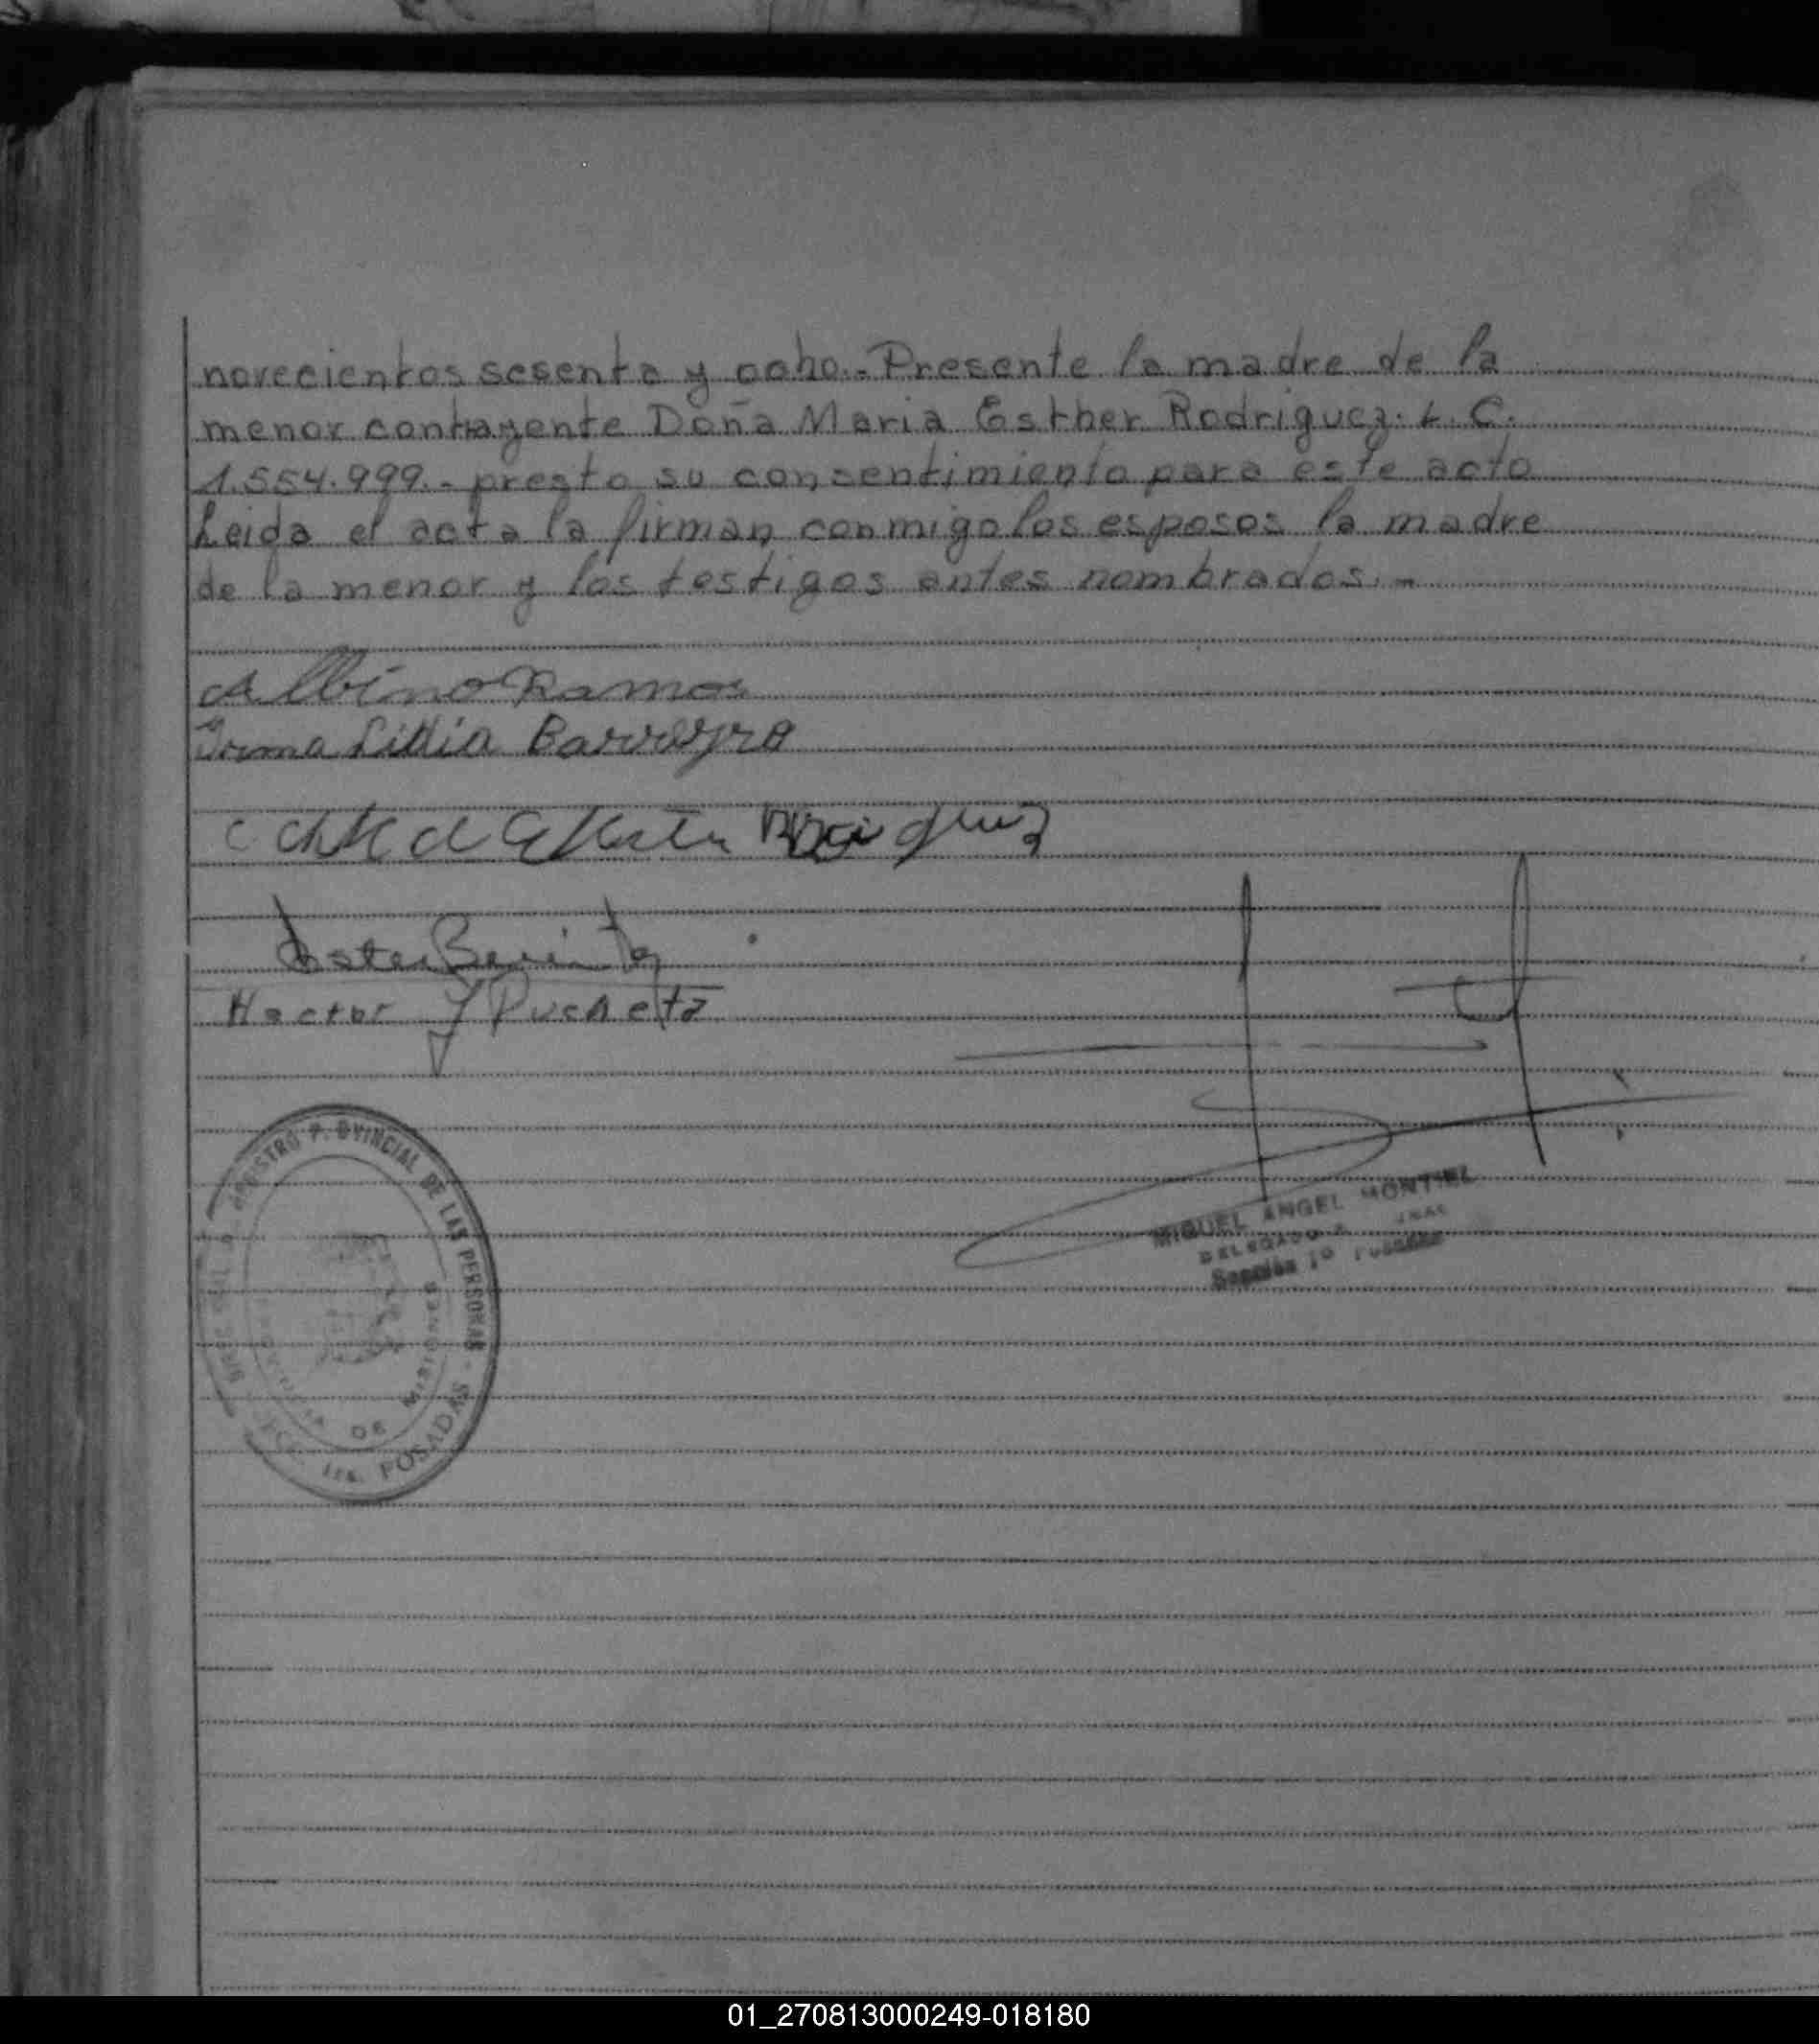 novecientos sesenta y ocho.- Presente la madre de la
menor contrayente Doña Maria Esther Rodriguez. L. C.
1.554.999.- presto su consentimiento para este acto
Leida el acta la firman conmigo los esposos la madre
de la menor y los testigos antes nombrados.-
Albino Ramos
Irma Lidia Barreyro
Rodriguez
Ester Benitez
Hector J Pucheta
REGISTRO P. OVINCIAL DE LAS PERSONAS
DE MISIONES
1ra. POSADAS
MIGUEL ANGEL MONTIEL
DELEGADO
Sección 1º
01_270813000249-018180